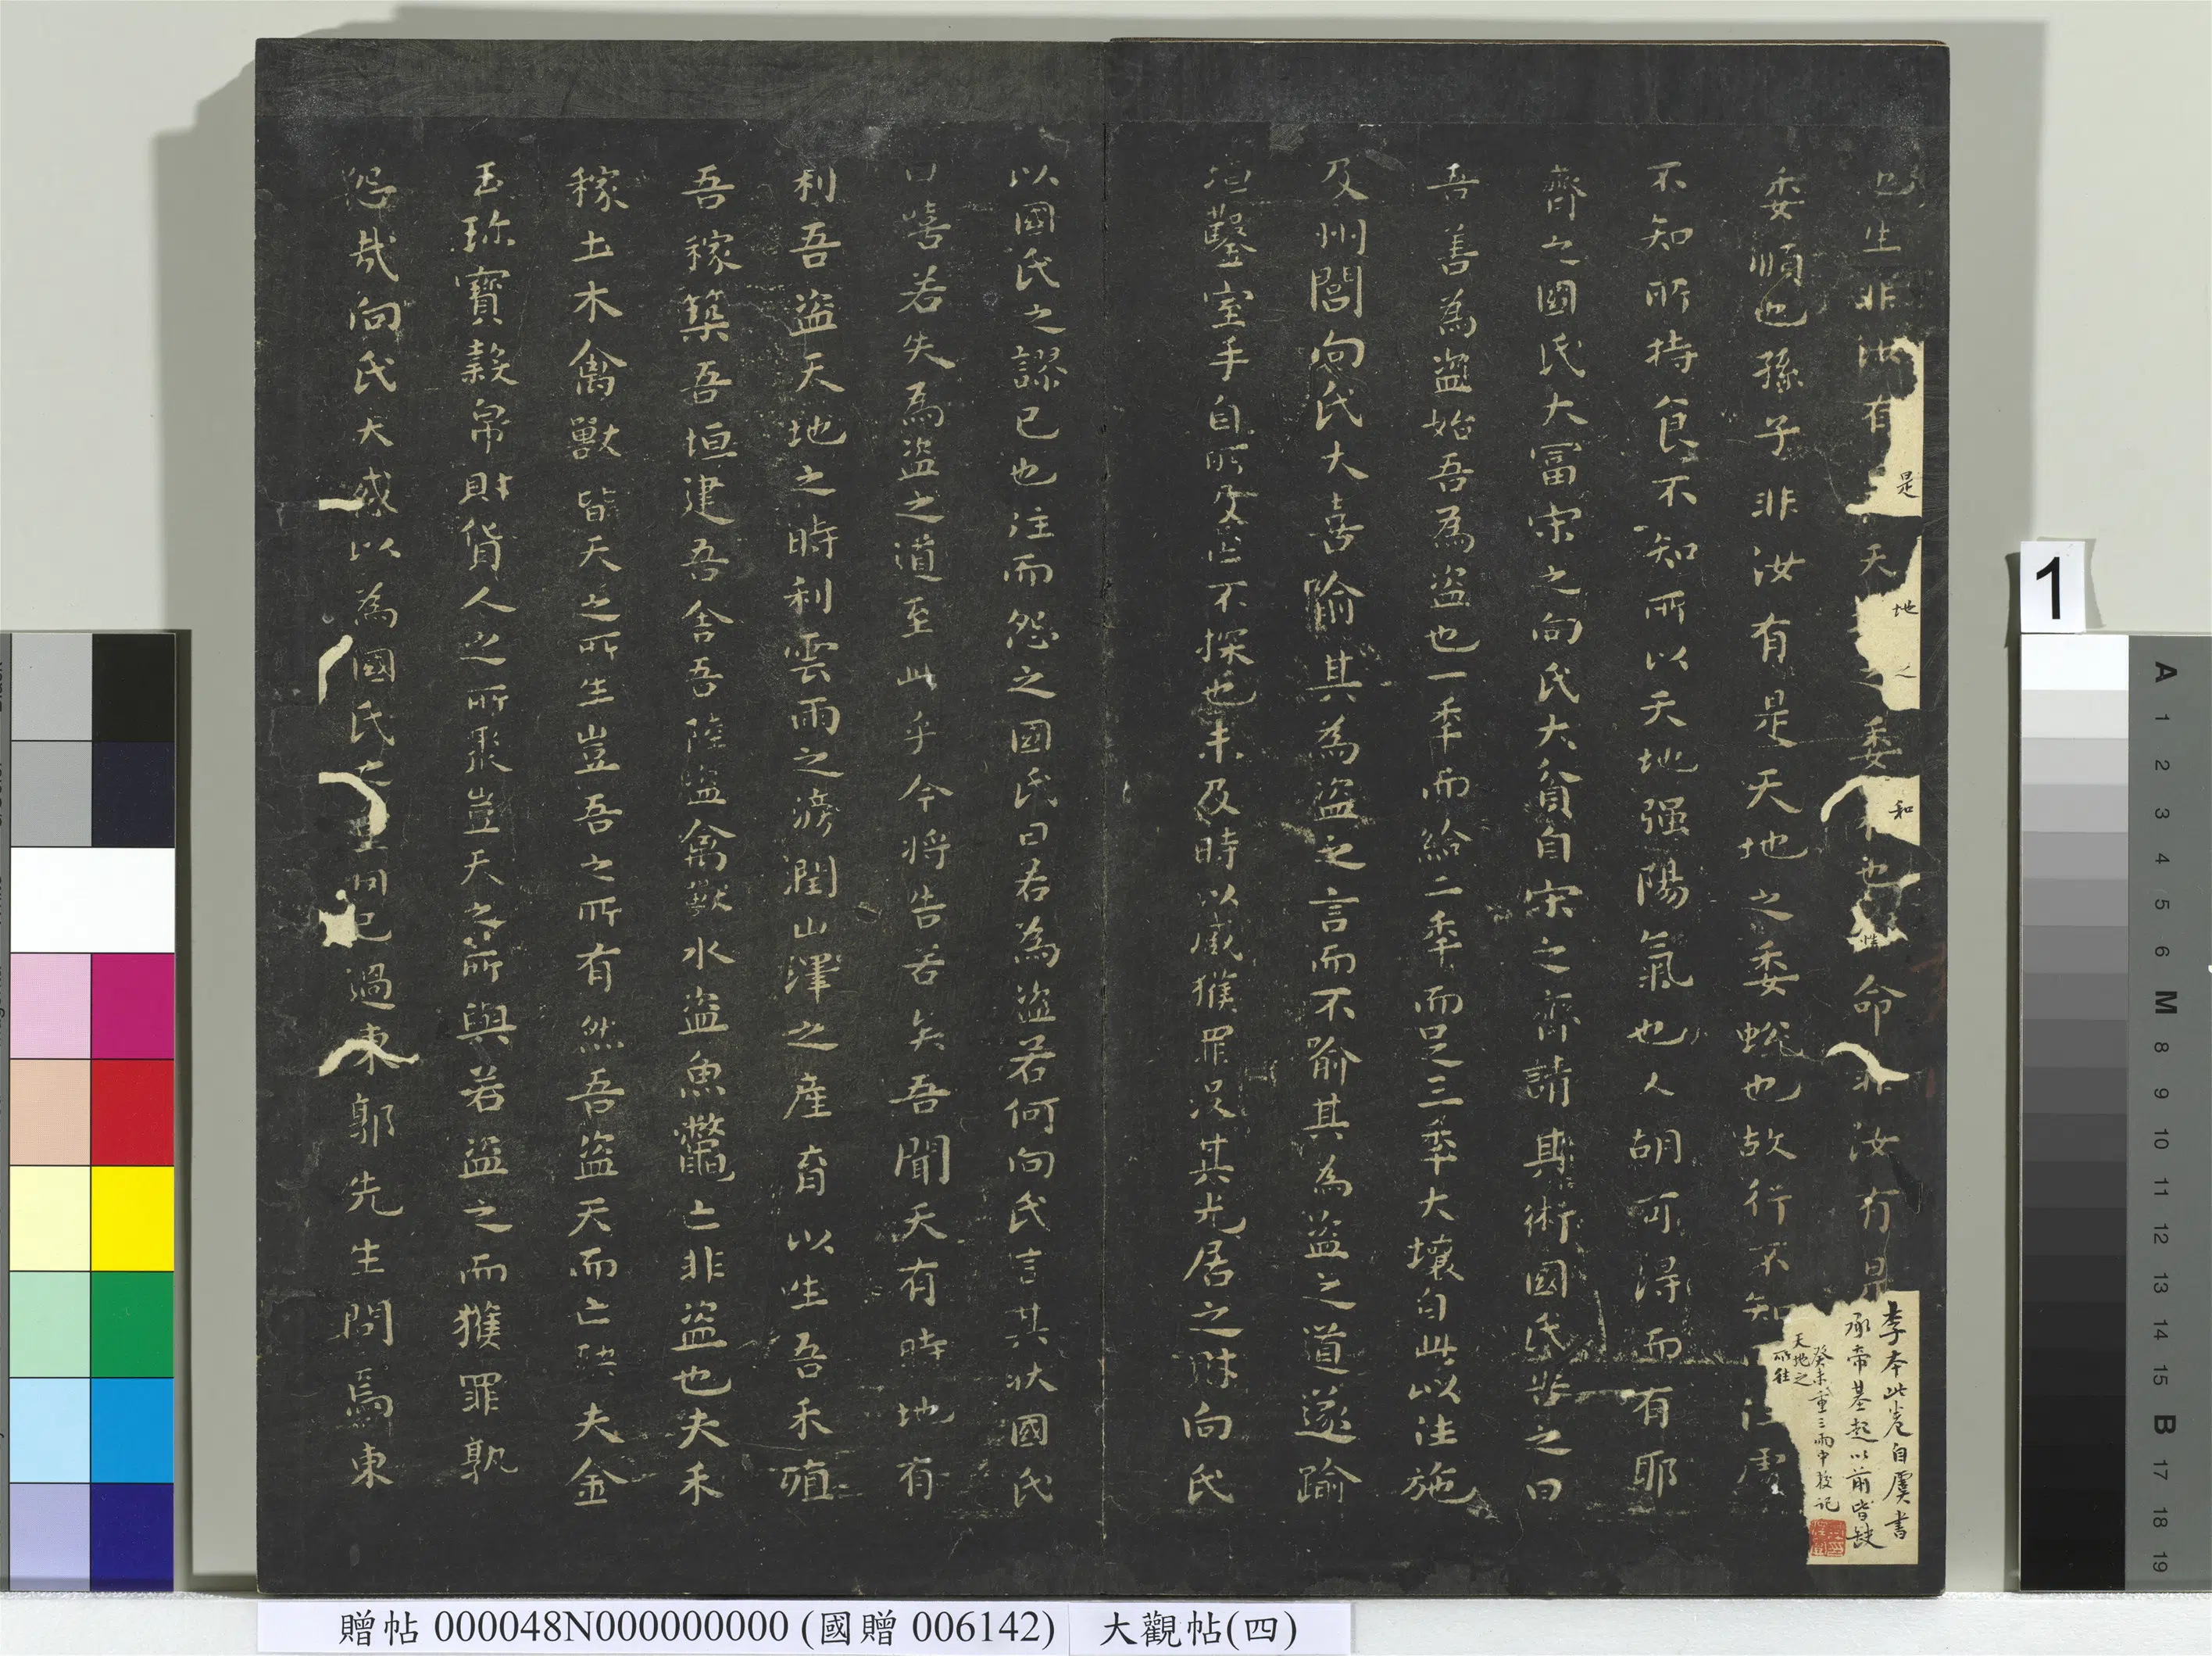 也生非汝有是天地之委和也性命非汝有是
委順也孫子非汝有是天地之委蛻也故行不知往處
不知所持食不知所以天地强陽氣也人胡可得而有耶
齊之國氏大冨宋之向氏大貧自宋之齊請其術國氏告之曰
吾善為盜始吾為盜也一秊而給二秊而足三秊大壤自此以往施
及州閭向氏大喜喻其為盜之言而不喻其為盜之道遂踰
垣鑿室手目所及亡不探也未及時以贓獲罪没其先居之財向氏
以國氏之謬已也往而怨之國氏曰若為盜若何向氏言其狀國氏
曰嘻若失為盜之道至此乎今將告若矣吾聞天有時地有
利吾盜天地之時利雲雨之滂潤山澤之產育以生吾禾殖
吾稼築吾垣建吾舍吾陸盜禽獸水盜魚鱉亡非盜也夫禾
稼土木禽獸皆天之所生豈吾之所有然吾盜天而亡殃夫金
玉珎寶穀帛財貨人之所聚豈天之所與若盜之而獲罪孰
怨哉向氏大惑以為國氏之重罔已過東郭先生問焉東
李本此卷自虞書
承帝基起以前皆缺
癸未重三雨中校记
天地之
所往
1
A 1 2 3 4 5 6 M 8 9 10 11 12 13 14 15 B 17 18 19
贈帖 000048N000000000 (國贈 006142) 大觀帖(四)